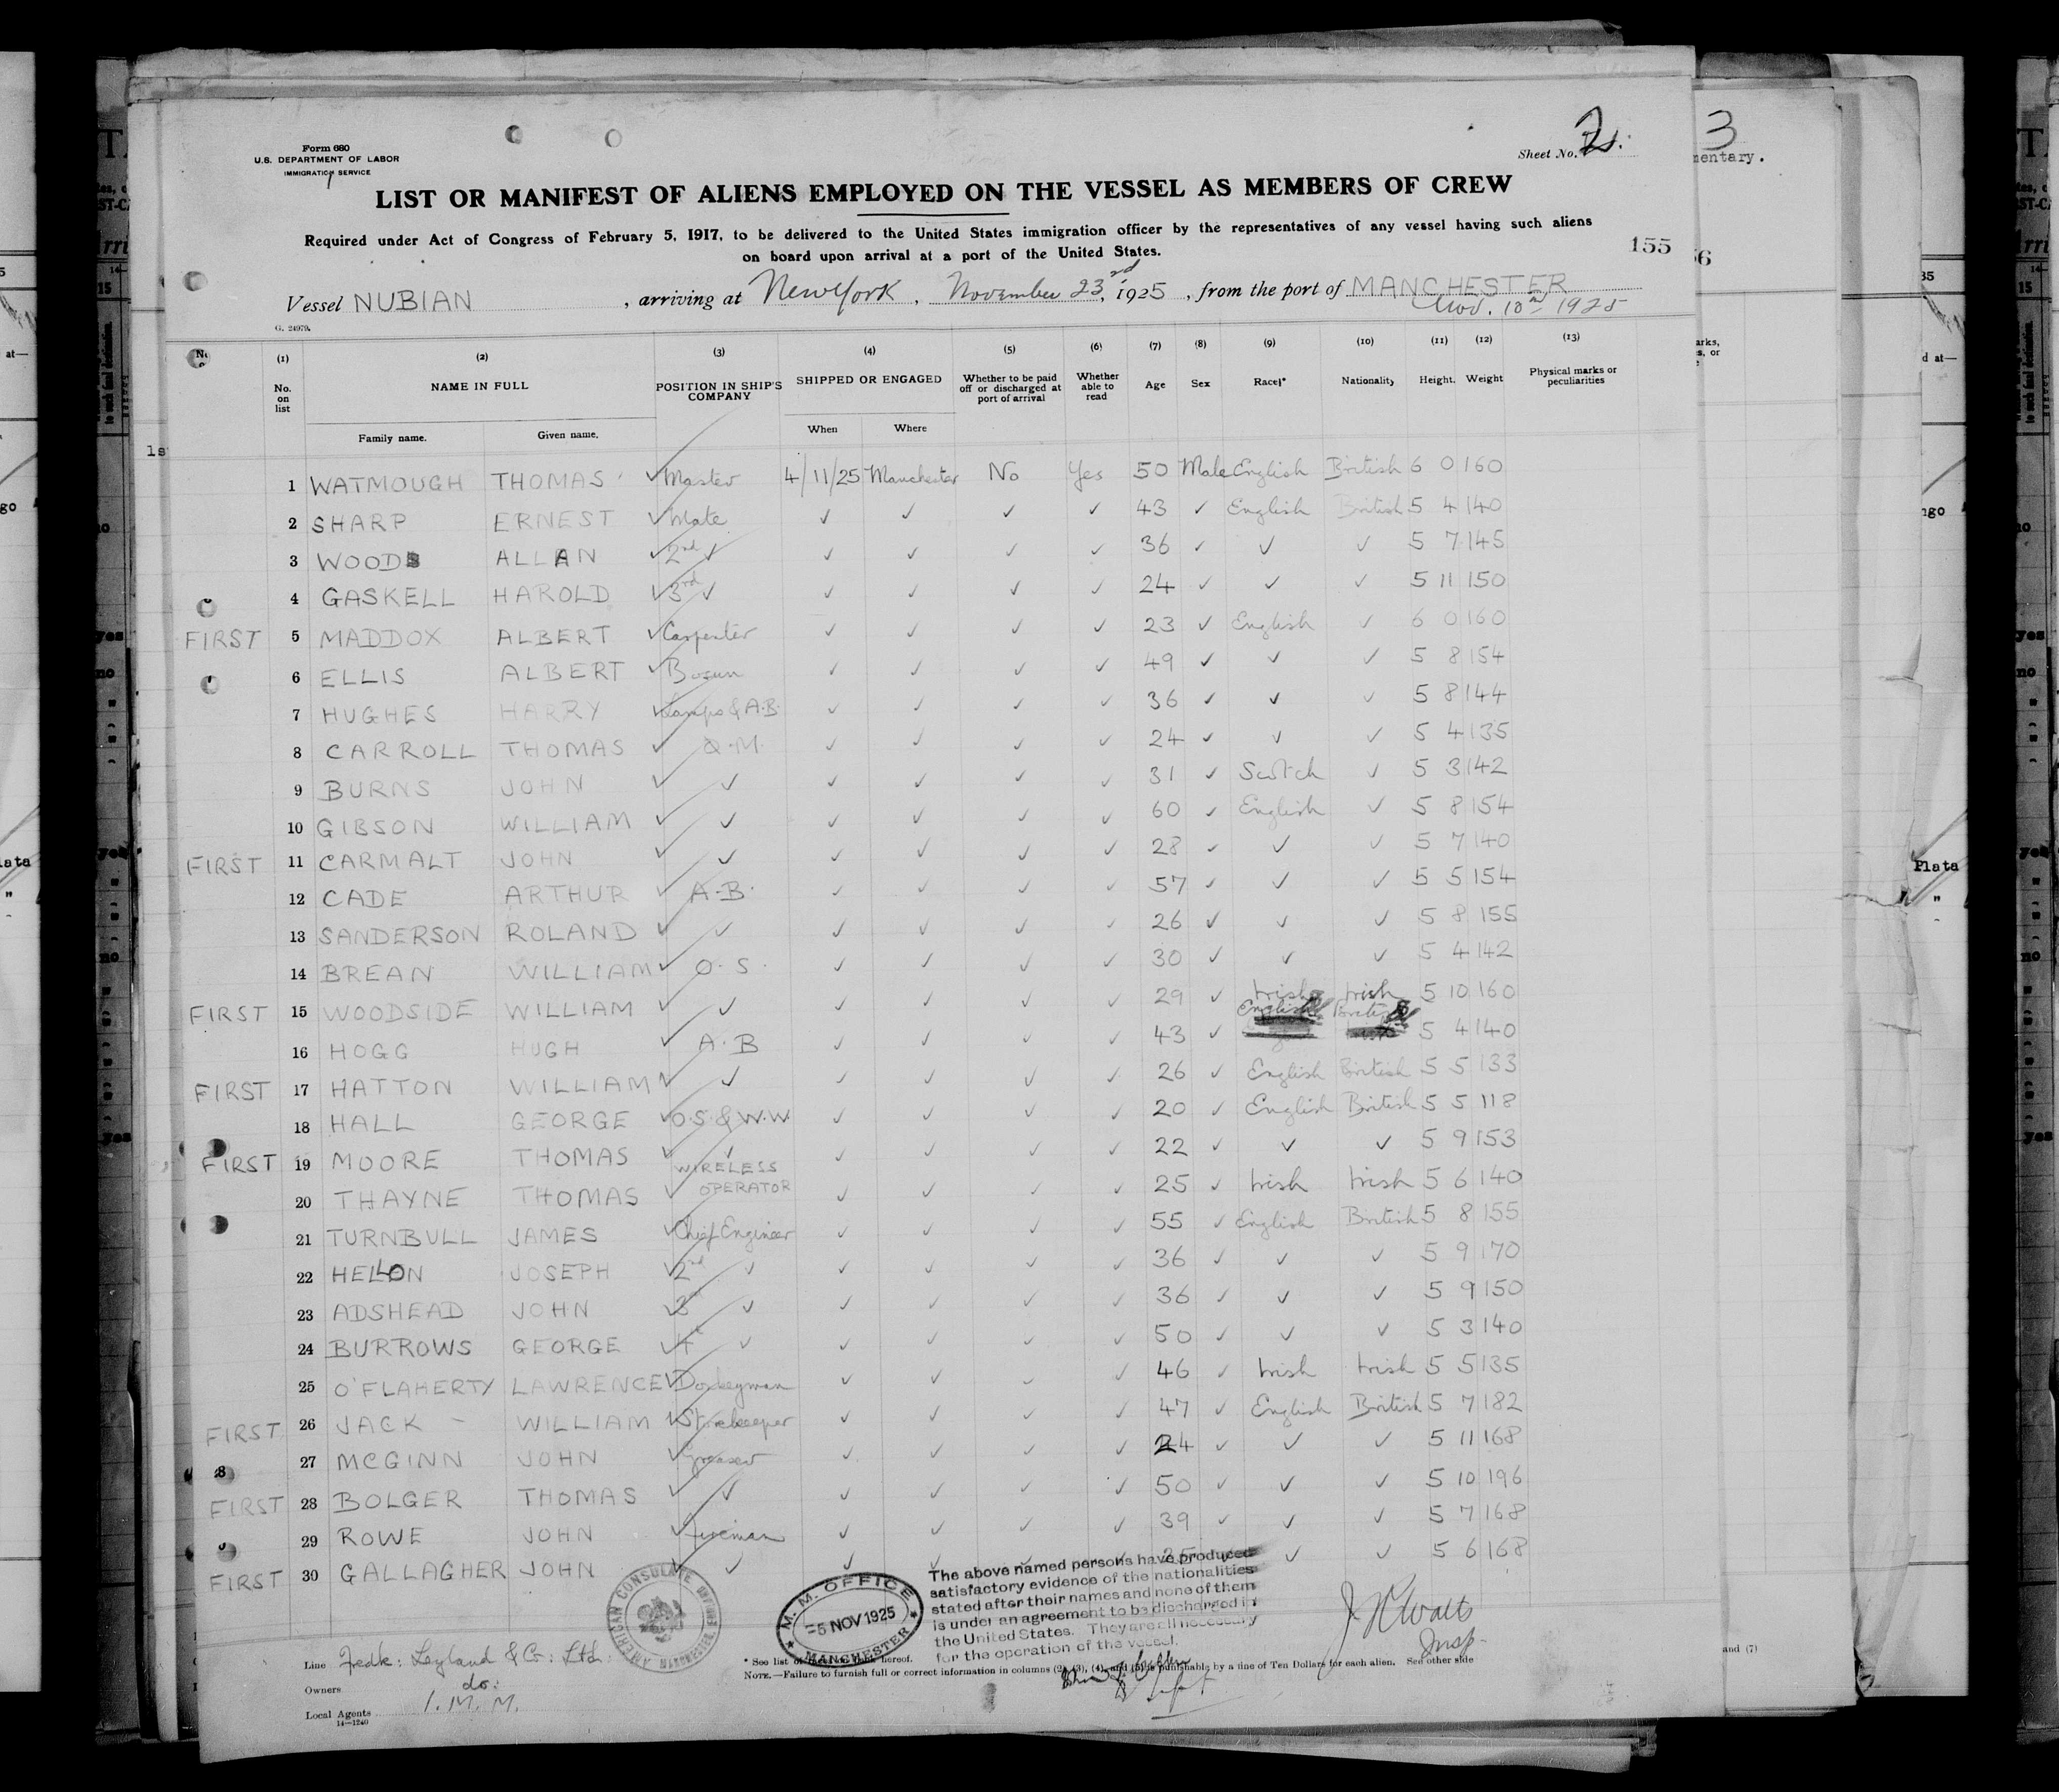 Form 680
U.S. DEPARTMENT OF LABOR
IMMIGRATION SERVICE
Sheet No. 2.
3
mentary.
LIST OR MANIFEST OF ALIENS EMPLOYED ON THE VESSEL AS MEMBERS OF CREW
Required under Act of Congress of February 5, 1917, to be delivered to the United States immigration officer by the representatives of any vessel having such aliens
on board upon arrival at a port of the United States.
155
Vessel NUBIAN, arriving at New York, November 23rd, 1925, from the port of MANCHESTER
Nov. 10th 1925
G. 24979.
(1) (2) (3) (4) (5) (6) (7) (8) (9) (10) (11) (12) (13)
No. on list NAME IN FULL POSITION IN SHIP'S COMPANY SHIPPED OR ENGAGED Whether to be paid off or discharged at port of arrival Whether able to read Age Sex Race* Nationality Height. Weight Physical marks or peculiarities
Family name. Given name. When Where
1 WATMOUGH THOMAS ✓ Master 4/11/25 Manchester No Yes 50 Male English British 6 0 160
2 SHARP ERNEST ✓ Mate ✓ ✓ ✓ ✓ 43 ✓ English British 5 4 140
3 WOODS ALLAN ✓ 2nd ✓ ✓ ✓ ✓ ✓ 36 ✓ ✓ ✓ 5 7 145
4 GASKELL HAROLD ✓ 3rd ✓ ✓ ✓ ✓ ✓ 24 ✓ ✓ ✓ 5 11 150
FIRST 5 MADDOX ALBERT ✓ Carpenter ✓ ✓ ✓ ✓ 23 ✓ English ✓ 6 0 160
6 ELLIS ALBERT ✓ Bosun ✓ ✓ ✓ ✓ 49 ✓ ✓ ✓ 5 8 154
7 HUGHES HARRY ✓ Lamps & A.B. ✓ ✓ ✓ ✓ 36 ✓ ✓ ✓ 5 8 144
8 CARROLL THOMAS ✓ Q.M. ✓ ✓ ✓ ✓ 24 ✓ ✓ ✓ 5 4 135
9 BURNS JOHN ✓ ✓ ✓ ✓ ✓ ✓ 31 ✓ Scotch ✓ 5 3 142
10 GIBSON WILLIAM ✓ ✓ ✓ ✓ ✓ ✓ 60 ✓ English ✓ 5 8 154
FIRST 11 CARMALT JOHN ✓ ✓ ✓ ✓ ✓ ✓ 28 ✓ ✓ ✓ 5 7 140
12 CADE ARTHUR ✓ A.B. ✓ ✓ ✓ ✓ 57 ✓ ✓ ✓ 5 5 154
13 SANDERSON ROLAND ✓ ✓ ✓ ✓ ✓ ✓ 26 ✓ ✓ ✓ 5 8 155
14 BREAN WILLIAM ✓ O.S. ✓ ✓ ✓ ✓ 30 ✓ ✓ ✓ 5 4 142
FIRST 15 WOODSIDE WILLIAM ✓ ✓ ✓ ✓ ✓ ✓ 29 ✓ Irish Irish 5 10 160
16 HOGG HUGH ✓ A.B ✓ ✓ ✓ ✓ 43 ✓ English British 5 4 140
FIRST 17 HATTON WILLIAM ✓ ✓ ✓ ✓ ✓ ✓ 26 ✓ English British 5 5 133
18 HALL GEORGE ✓ O.S. & W.W ✓ ✓ ✓ ✓ 20 ✓ English British 5 5 118
FIRST 19 MOORE THOMAS ✓ ✓ ✓ ✓ ✓ ✓ 22 ✓ ✓ ✓ 5 9 153
20 THAYNE THOMAS ✓ WIRELESS OPERATOR ✓ ✓ ✓ ✓ 25 ✓ Irish Irish 5 6 140
21 TURNBULL JAMES ✓ Chief Engineer ✓ ✓ ✓ ✓ 55 ✓ English British 5 8 155
22 HELLON JOSEPH ✓ 2nd ✓ ✓ ✓ ✓ ✓ 36 ✓ ✓ ✓ 5 9 170
23 ADSHEAD JOHN ✓ 3rd ✓ ✓ ✓ ✓ ✓ 36 ✓ ✓ ✓ 5 9 150
24 BURROWS GEORGE ✓ 4th ✓ ✓ ✓ ✓ ✓ 50 ✓ ✓ ✓ 5 3 140
25 O'FLAHERTY LAWRENCE ✓ Donkeyman ✓ ✓ ✓ ✓ 46 ✓ Irish Irish 5 5 135
FIRST 26 JACK - WILLIAM ✓ Storekeeper ✓ ✓ ✓ ✓ 47 ✓ English British 5 7 182
27 MCGINN JOHN ✓ Greaser ✓ ✓ ✓ ✓ 24 ✓ ✓ ✓ 5 11 168
FIRST 28 BOLGER THOMAS ✓ ✓ ✓ ✓ ✓ ✓ 50 ✓ ✓ ✓ 5 10 196
29 ROWE JOHN ✓ Fireman ✓ ✓ ✓ ✓ 39 ✓ ✓ ✓ 5 7 168
FIRST 30 GALLAGHER JOHN ✓ ✓ ✓ ✓ ✓ ✓ 35 ✓ ✓ ✓ 5 6 168
AMERICAN CONSULATE
M. M. OFFICE
-5 NOV 1925
MANCHESTER
The above named persons have produced
satisfactory evidence of the nationalities
stated after their names and none of them
is under an agreement to be discharged in
the United States. They are all necessary
for the operation of the vessel.
J. Watts
Insp.
Line Fredk: Leyland & Co: Ltd:
Owners do:
Local Agents I. M. M.
14—1240
* See list of hereof.
NOTE.—Failure to furnish full or correct information in columns (2), (3), (4), and (5) is punishable by a fine of Ten Dollars for each alien. See other side
and (7)
Plata